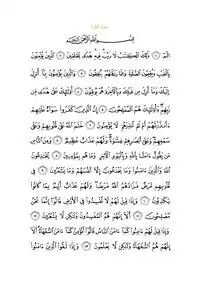 سورة البقرة
بِسْمِ اللَّهِ الرَّحْمَٰنِ الرَّحِيمِ
الٓمٓ ۝١ ذَٰلِكَ ٱلْكِتَٰبُ لَا رَيْبَ فِيهِ هُدًى لِّلْمُتَّقِينَ ۝٢ ٱلَّذِينَ يُؤْمِنُونَ
بِٱلْغَيْبِ وَيُقِيمُونَ ٱلصَّلَوٰةَ وَمِمَّا رَزَقْنَٰهُمْ يُنفِقُونَ ۝٣ وَٱلَّذِينَ يُؤْمِنُونَ بِمَآ أُنزِلَ
إِلَيْكَ وَمَآ أُنزِلَ مِن قَبْلِكَ وَبِٱلْءَاخِرَةِ هُمْ يُوقِنُونَ ۝٤ أُو۟لَٰٓئِكَ عَلَىٰ هُدًى مِّن
رَّبِّهِمْ وَأُو۟لَٰٓئِكَ هُمُ ٱلْمُفْلِحُونَ ۝٥ إِنَّ ٱلَّذِينَ كَفَرُوا۟ سَوَآءٌ عَلَيْهِمْ
ءَأَنذَرْتَهُمْ أَمْ لَمْ تُنذِرْهُمْ لَا يُؤْمِنُونَ ۝٦ خَتَمَ ٱللَّهُ عَلَىٰ قُلُوبِهِمْ وَعَلَىٰ
سَمْعِهِمْ وَعَلَىٰٓ أَبْصَٰرِهِمْ غِشَٰوَةٌ وَلَهُمْ عَذَابٌ عَظِيمٌ ۝٧ وَمِنَ ٱلنَّاسِ
مَن يَقُولُ ءَامَنَّا بِٱللَّهِ وَبِٱلْيَوْمِ ٱلْءَاخِرِ وَمَا هُم بِمُؤْمِنِينَ ۝٨ يُخَٰدِعُونَ
ٱللَّهَ وَٱلَّذِينَ ءَامَنُوا۟ وَمَا يَخْدَعُونَ إِلَّآ أَنفُسَهُمْ وَمَا يَشْعُرُونَ ۝٩ فِى
قُلُوبِهِم مَّرَضٌ فَزَادَهُمُ ٱللَّهُ مَرَضًا وَلَهُمْ عَذَابٌ أَلِيمٌۢ بِمَا كَانُوا۟
يَكْذِبُونَ ۝١٠ وَإِذَا قِيلَ لَهُمْ لَا تُفْسِدُوا۟ فِى ٱلْأَرْضِ قَالُوٓا۟ إِنَّمَا نَحْنُ
مُصْلِحُونَ ۝١١ أَلَآ إِنَّهُمْ هُمُ ٱلْمُفْسِدُونَ وَلَٰكِن لَّا يَشْعُرُونَ ۝١٢
وَإِذَا قِيلَ لَهُمْ ءَامِنُوا۟ كَمَآ ءَامَنَ ٱلنَّاسُ قَالُوٓا۟ أَنُؤْمِنُ كَمَآ ءَامَنَ ٱلسُّفَهَآءُ أَلَآ
إِنَّهُمْ هُمُ ٱلسُّفَهَآءُ وَلَٰكِن لَّا يَعْلَمُونَ ۝١٣ وَإِذَا لَقُوا۟ ٱلَّذِينَ ءَامَنُوا۟